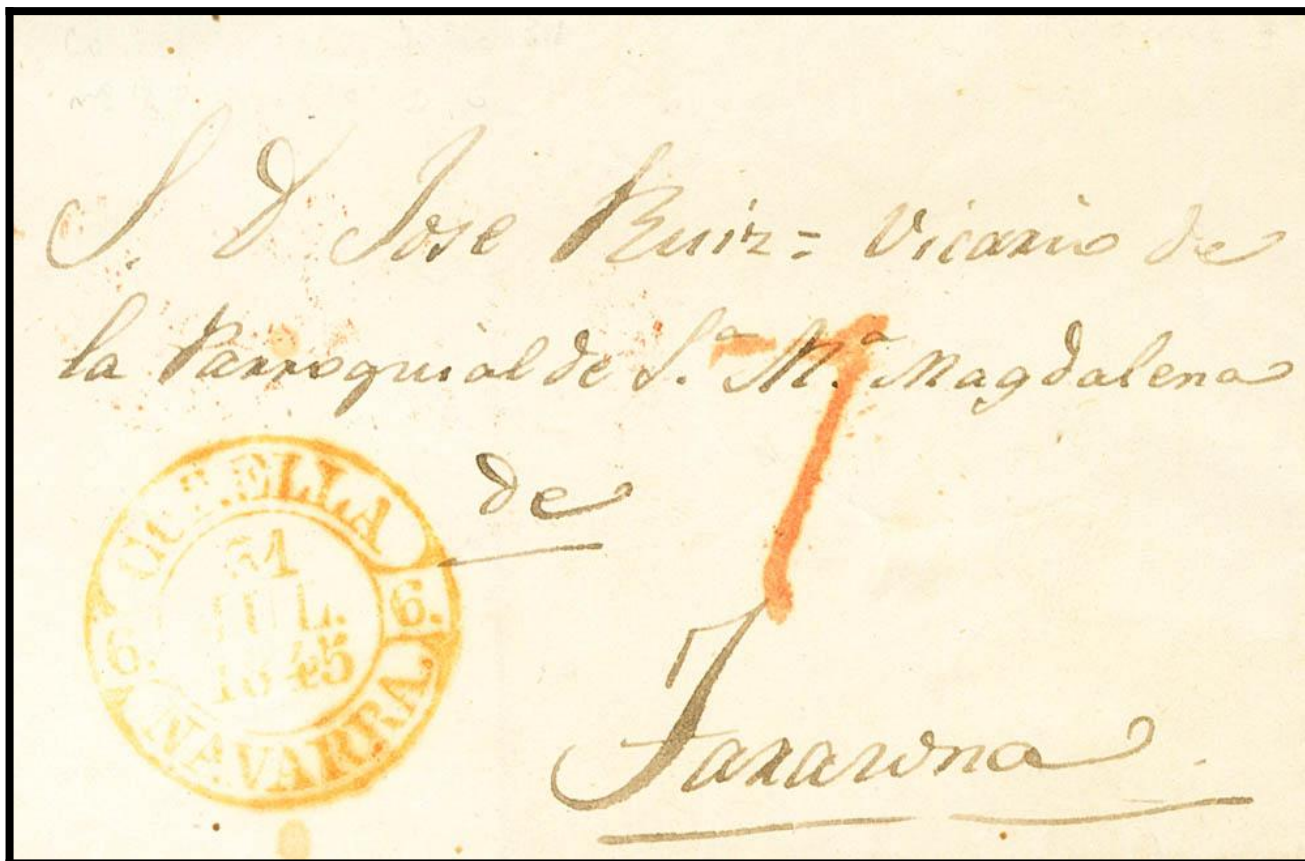 S. D. Jose Ruiz= Vicario de
la Parroquial de S.ª M.ª Magdalena
de
Tarazona
CORELLA
31
JUL.
1845
6. 6.
NAVARRA.